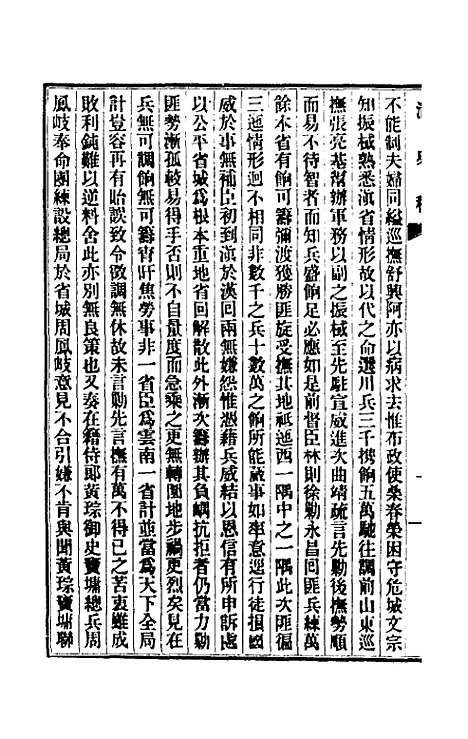 清史稿
不能制夫婦同縊巡撫舒興阿亦以病求去惟布政使桑春榮困守危城文宗
知振棫熟悉滇省情形故以代之命選川兵三千攜餉五萬馳往調前山東巡
撫張亮基幫辦軍務以副之振棫至先駐宣威進次曲靖疏言先勦後撫勢順
而易不待智者而知兵盛餉足必應如是前督臣林則徐勦永昌回匪兵練萬
餘本省有餉可籌彌渡獲勝匪旋受撫其地祇迤西一隅中之一隅此次匪徧
三迤情形迥不相同非數千之兵十數萬之餉所能蕆事如率意逕行徒損國
威於事無補臣初到滇於漢回兩無嫌怨惟憑藉兵威結以恩信有所申訴處
以公平省城爲根本重地省回解散此外漸次籌辦其負嵎抗拒者仍當力勦
匪勢漸孤較易得手否則不自量度而急乘之更無轉圜地步禍更烈矣見在
兵無可調餉無可籌宵旰焦勞事非一省臣爲雲南一省計並當爲天下全局
計豈容再有貽誤致令徵調無休故未言勦先言撫有萬不得已之苦衷雖成
敗利鈍難以逆料舍此亦別無良策也又奏在籍侍郎黃琮御史竇垿總兵周
鳳岐奉命團練設總局於省城周鳳岐意見不合引嫌不肯與聞黃琮竇垿聯